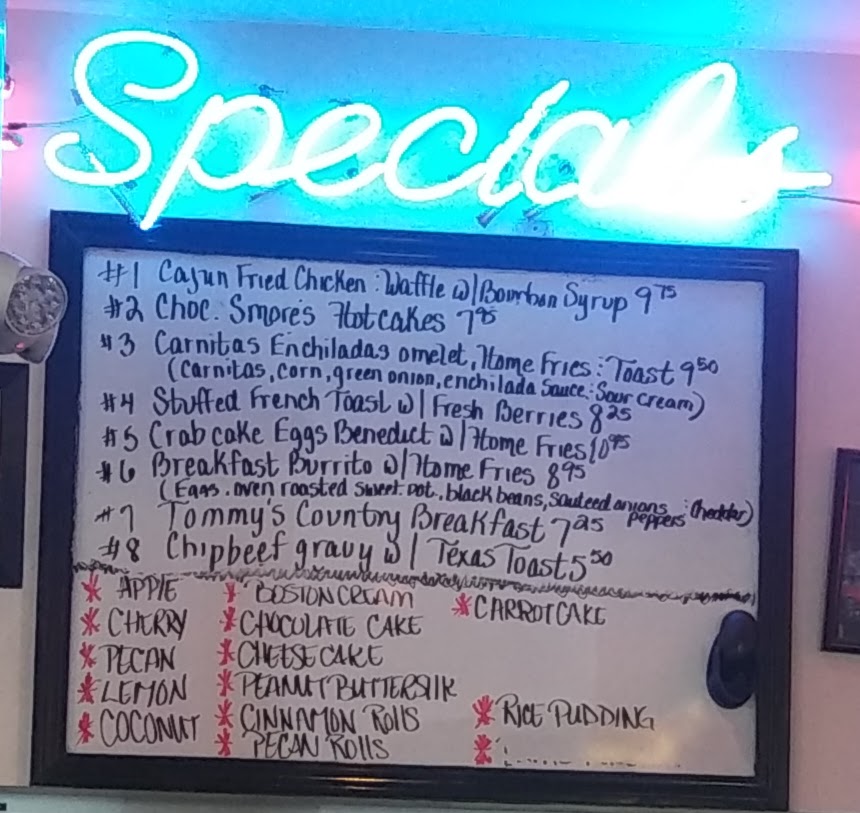 Specials
#1 Cajun Fried Chicken : Waffle w/ Bourbon Syrup 9 75
#2 Choc. Smores Hotcakes 7 95
#3 Carnitas Enchiladas omelet, Home Fries : Toast 9 50
(Carnitas, corn, green onion, enchilada sauce : Sour Cream)
#4 Stuffed French Toast w/ Fresh Berries 8 25
#5 Crab cake Eggs Benedict w/ Home Fries 10 95
#6 Breakfast Burrito w/ Home Fries 8 95
(Eggs. oven roasted sweet. pot., black beans, sauteed onions peppers : Cheddar)
#7 Tommy's Country Breakfast 7 25
#8 Chipbeef gravy w/ Texas Toast 5 50
* APPLE
* CHERRY
* PECAN
* LEMON
* COCONUT
* BOSTON CREAM
* CHOCOLATE CAKE
* CHEESE CAKE
* PEANUT BUTTER SILK
* CINNAMON ROLLS
* PECAN ROLLS
* CARROT CAKE
* RICE PUDDING
*